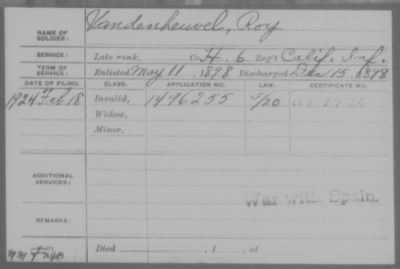 NAME OF SOLDIER: Vandenheuvel, Roy
SERVICE: Late rank, Co. H. 6 Reg't Calif. Inf.
TERM OF SERVICE: Enlisted May 11, 1898 Discharged Dec 15, 1898
DATE OF FILING. CLASS. APPLICATION NO. LAW. CERTIFICATE NO.
1924 Feb 18 Invalid, 1496255 5/20
Widow,
Minor,
ADDITIONAL SERVICES:
War with Spain.
REMARKS:
Died , 1 , at